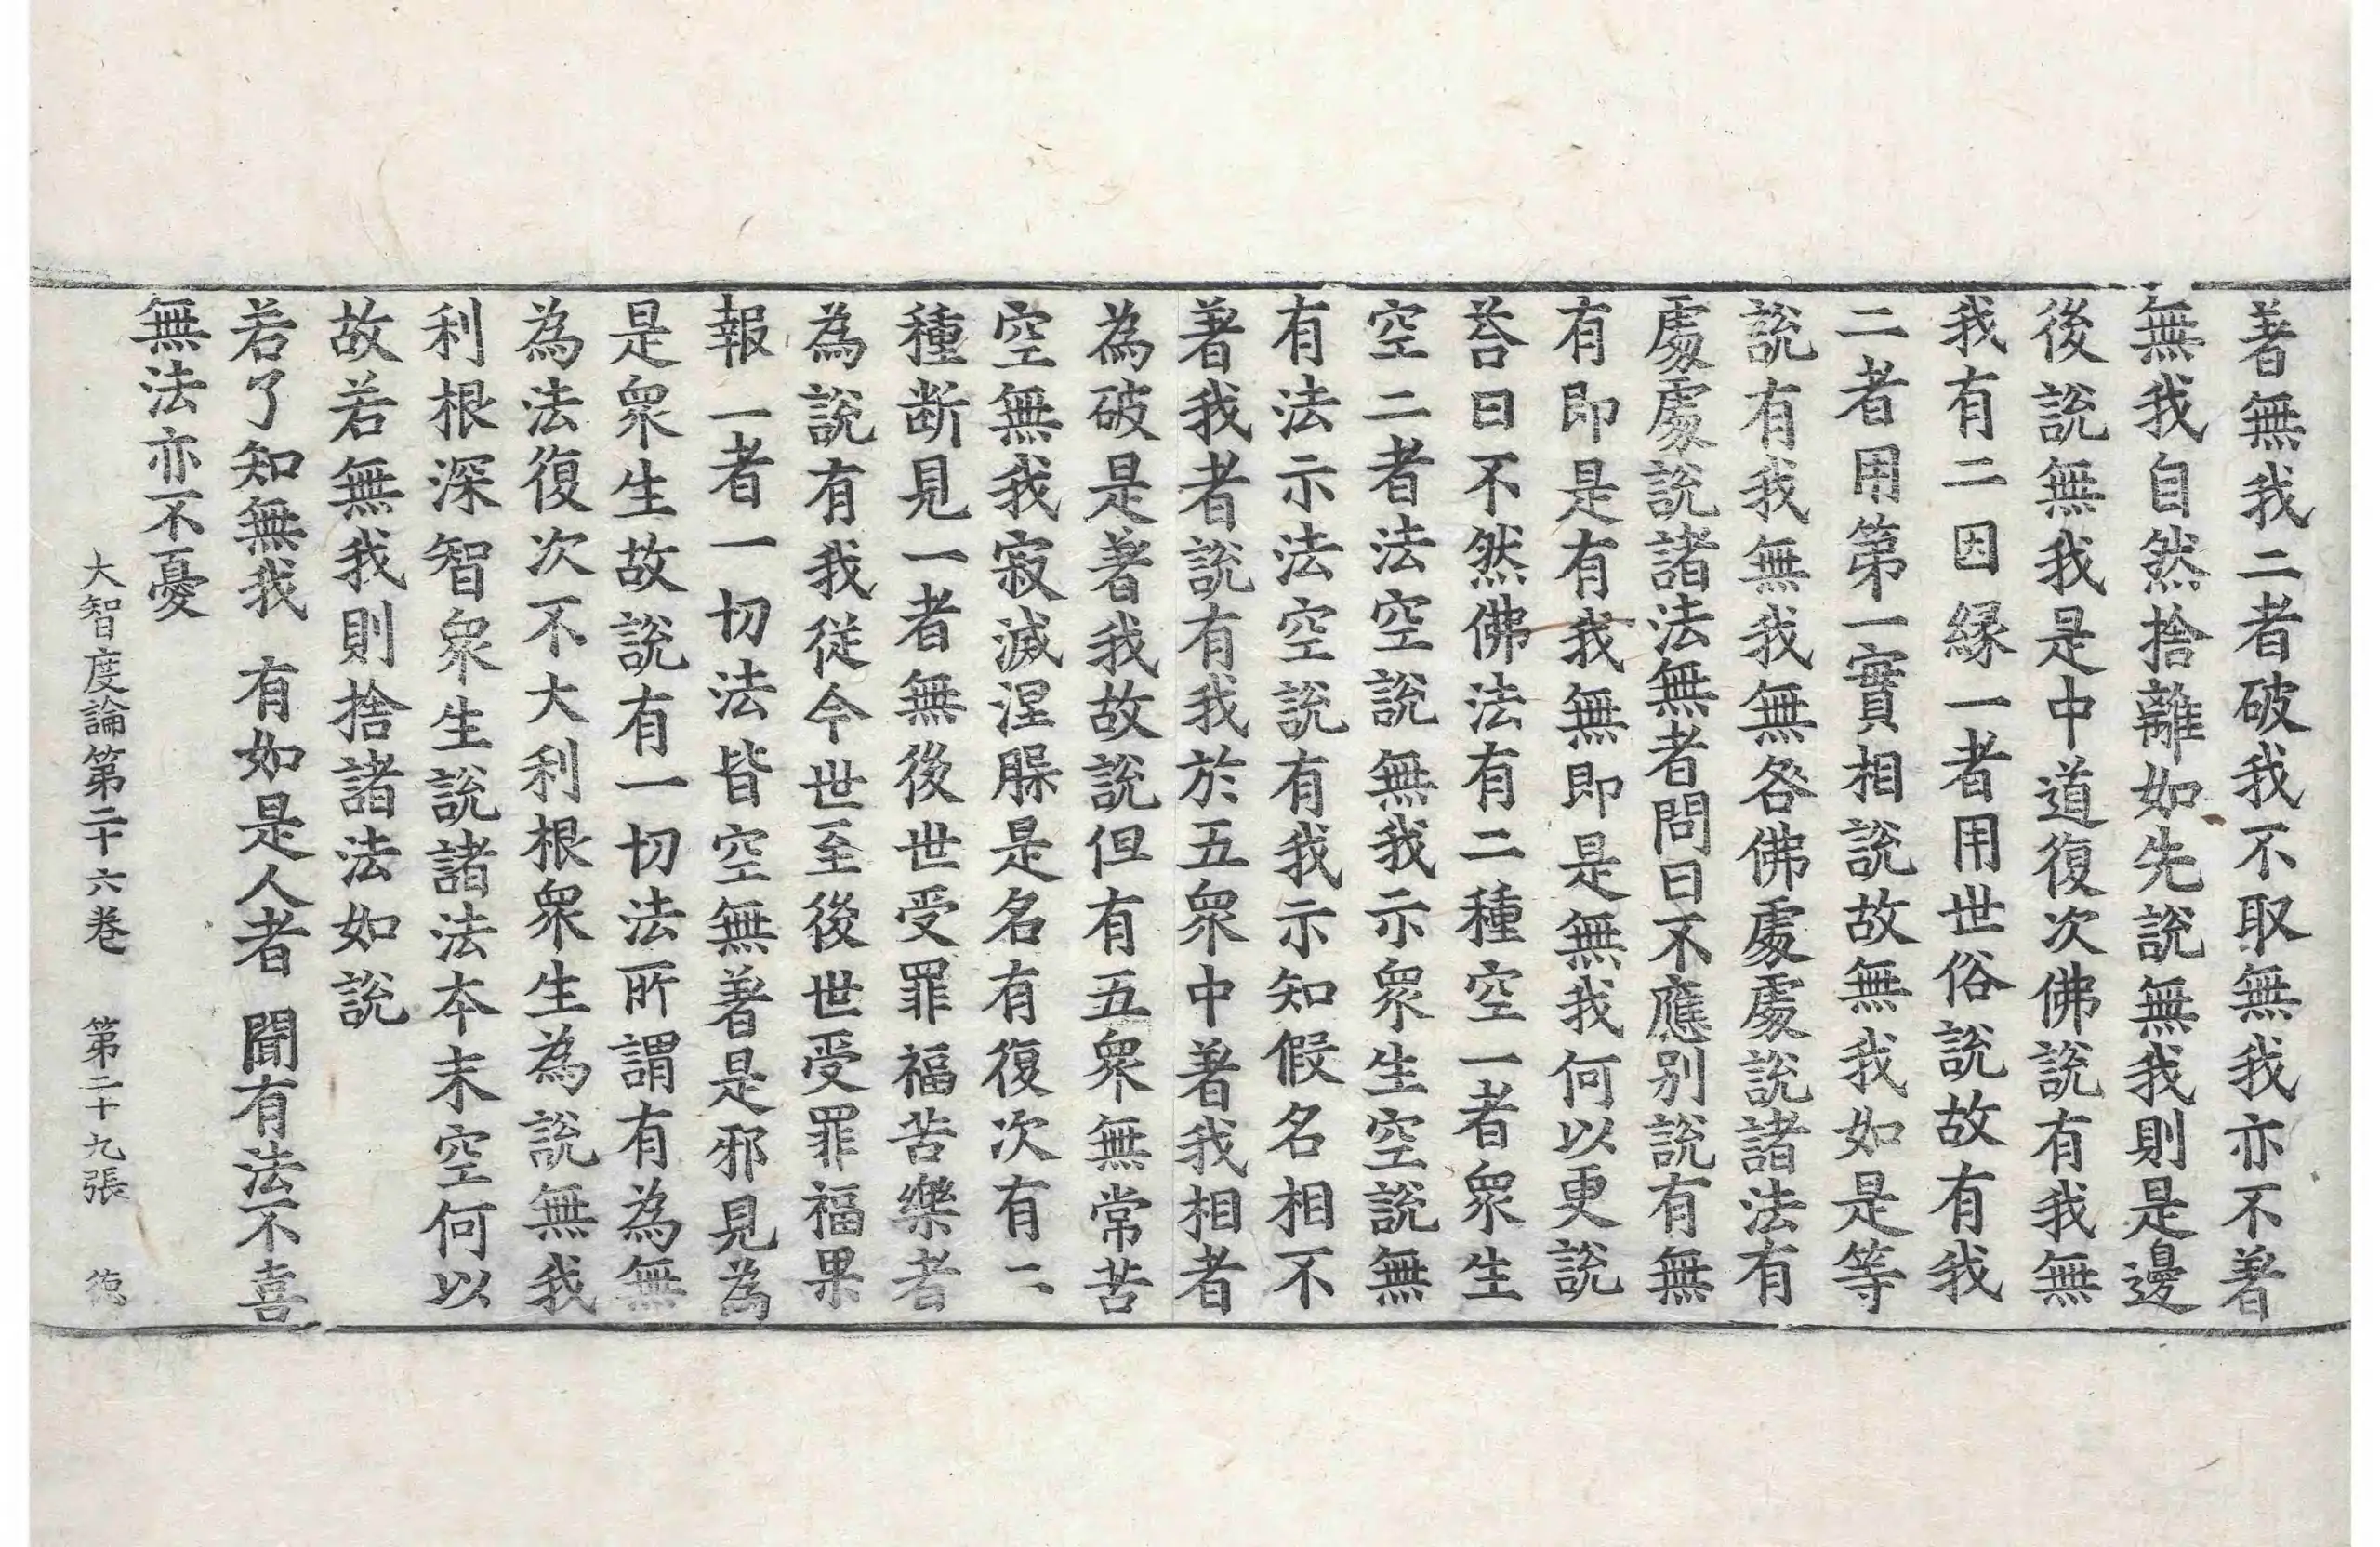 著無我二者破我不取無我亦不著
無我自然捨離如先說無我則是邊
後說無我是中道復次佛說有我無
我有二因緣一者用世俗說故有我
二者用第一實相說故無我如是等
說有我無我無咎佛處處說諸法有
處處說諸法無者問曰不應別說有無
有即是有我無即是無我何以更說
荅曰不然佛法有二種空一者衆生
空二者法空說無我示衆生空說無
有法示法空說有我示知假名相不
著我者說有我於五衆中著我相者
為破是著我故說但有五衆無常苦
空無我寂滅涅槃是名有復次有二
種断見一者無後世受罪福苦樂者
為說有我從今世至後世受罪福果
報一者一切法皆空無著是邪見為
是衆生故說有一切法所謂有為無
為法復次不大利根衆生為說無我
利根深智衆生說諸法本末空何以
故若無我則捨諸法如說
若了知無我 有如是人者 聞有法不喜
無法亦不憂
大智度論第二十六卷 第二十九張 徳